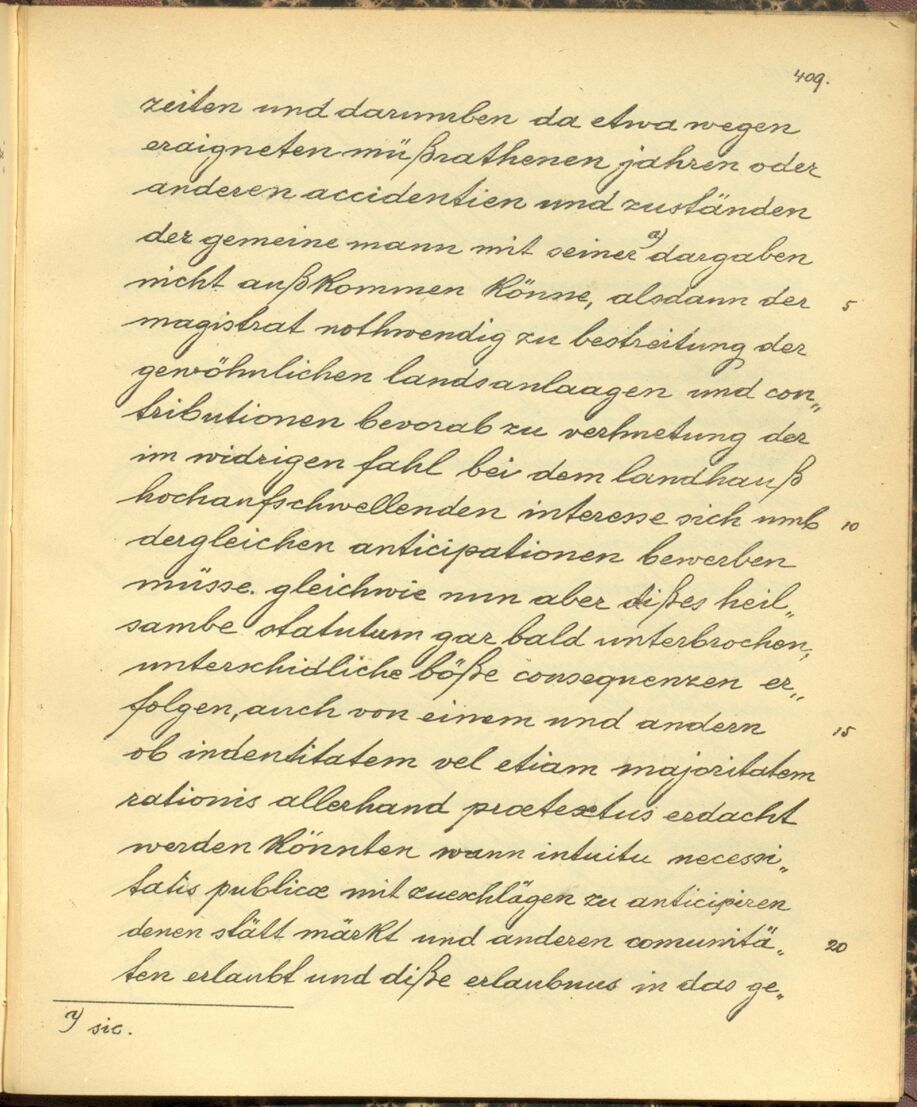 409.
zeiten und darumben da etwa wegen
eraigneten müßrathenen jahren oder
anderen accidentien und zuständen
der gemeine mann mit seiner a) dargaben
nicht außkommen könne, alsdann der 5
magistrat nothwendig zu bestreitung der
gewöhnlichen landsanlaagen und con„
tributionen bevorab zu verhuetung der
im widrigen fahl bei dem landhauß
hochaufschwellenden interesse sich umb 10
dergleichen anticipationen bewerben
müsse. gleichwie nun aber dißes heil„
sambe statutum gar bald unterbrochen,
unterschidliche böße consequenzen er„
folgen, auch von einem und andern 15
ob indentitatem vel etiam majoritatem
rationis allerhand prætextus erdacht
werden könnten wann intuitu necessi„
tatis publicæ mit zueschlägen zu anticipiren
denen stätt märkt und anderen comunitä„ 20
ten erlaubt und diße erlaubnus in das ge„
a) sic.